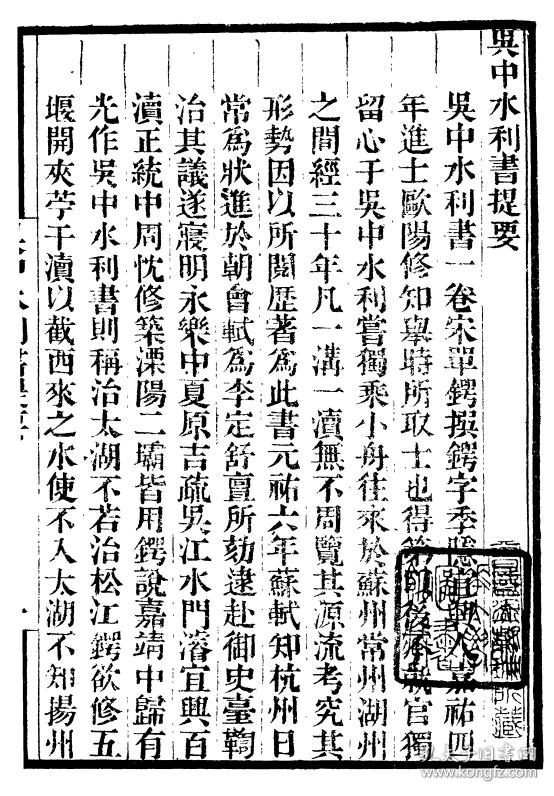 吳中水利書提要
吳中水利書一卷宋單鍔撰鍔字季隱宜興人嘉祐四
年進士歐陽修知舉時所取士也得第 後不就官獨
留心于吳中水利嘗獨乘小舟往來於蘇州常州湖州
之間經三十年凡一溝一瀆無不周覽其源流考究其
形勢因以所閱歷著爲此書元祐六年蘇軾知杭州日
常爲狀進於朝會軾爲李定舒亶所劾逮赴御史臺鞫
治其議遂寢明永樂中夏原吉疏吳江水門濬宜興百
瀆正統中周忱修築溧陽二壩皆用鍔說嘉靖中歸有
光作吳中水利書則稱治太湖不若治松江鍔欲修五
堰開夾苧干瀆以截西來之水使不入太湖不知揚州
一
孔夫子旧书网
www.kongfz.com